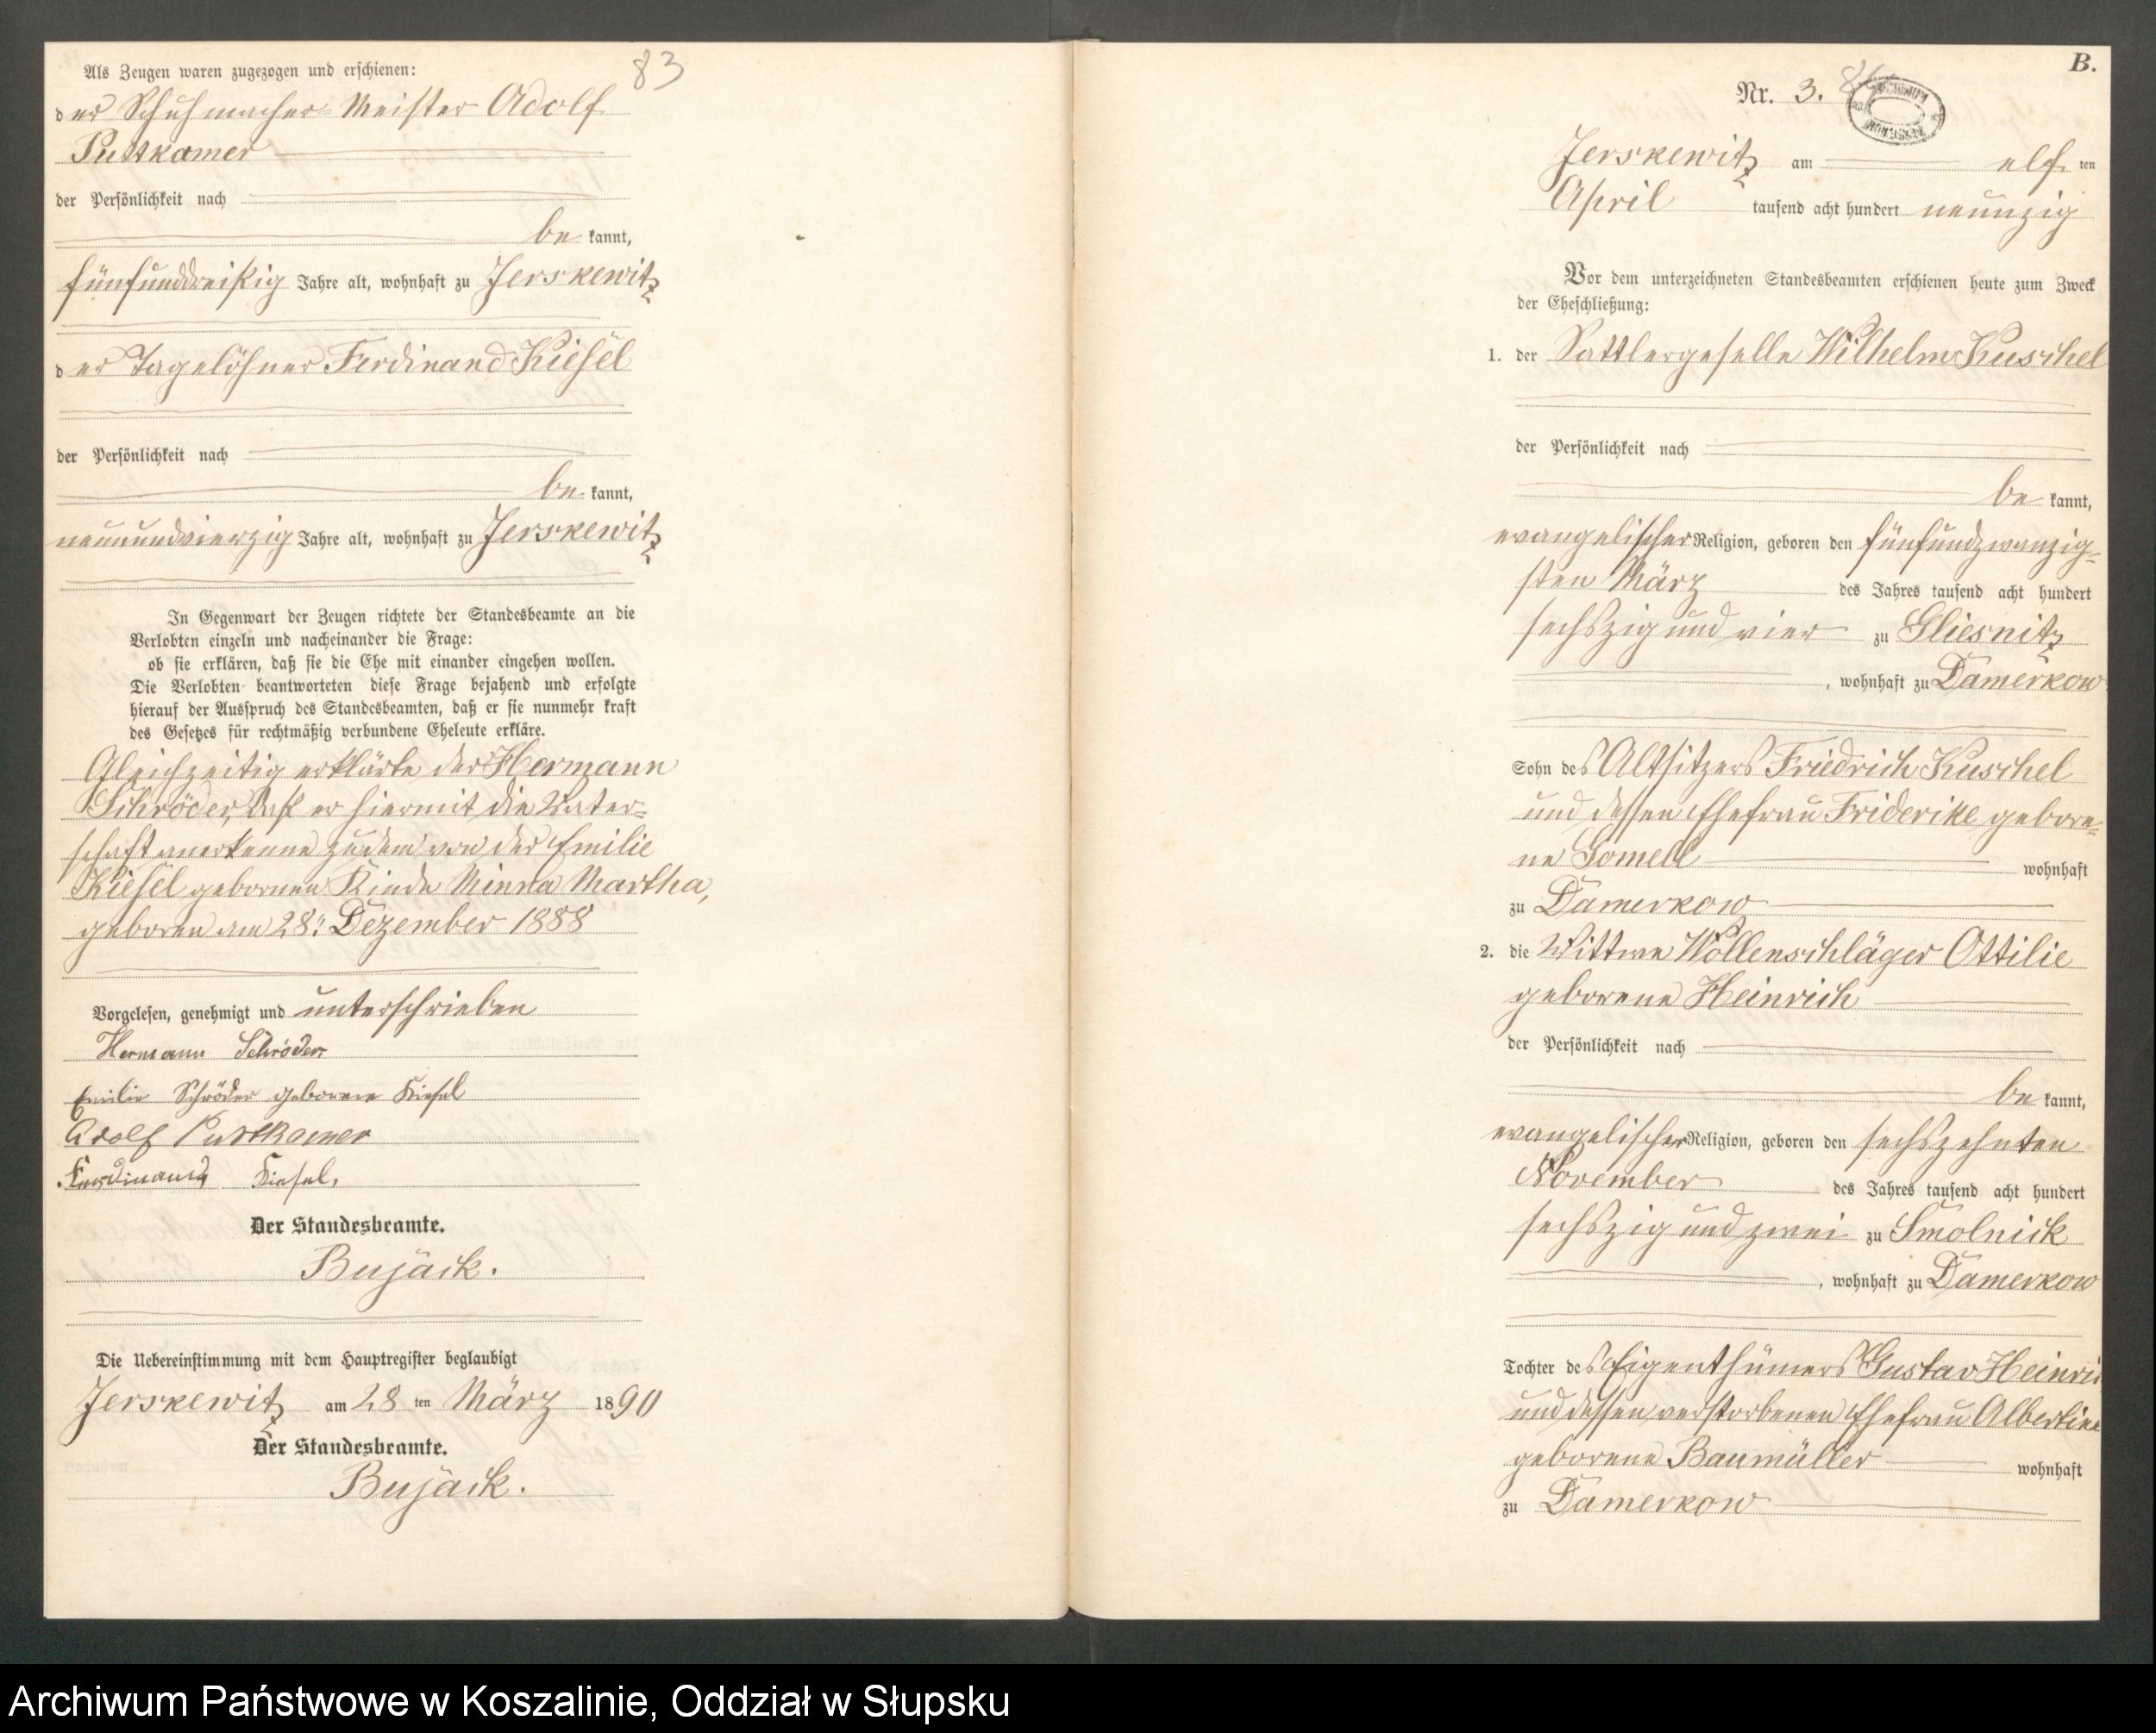 83
Als Zeugen waren zugezogen und erschienen:
der Schuhmacher-Meister Adolf
Puttkamer
der Persönlichkeit nach
be kannt,
fünfunddreißig Jahre alt, wohnhaft zu Jerskewitz
der Tagelöhner Ferdinand Kiesel
der Persönlichkeit nach
be kannt,
neunundvierzig Jahre alt, wohnhaft zu Jerskewitz
In Gegenwart der Zeugen richtete der Standesbeamte an die
Verlobten einzeln und nacheinander die Frage:
ob sie erklären, daß sie die Ehe mit einander eingehen wollen.
Die Verlobten beantworteten diese Frage bejahend und erfolgte
hierauf der Ausspruch des Standesbeamten, daß er sie nunmehr kraft
des Gesetzes für rechtmäßig verbundene Eheleute erkläre.
Gleichzeitig erklärte der Hermann
Schröder, daß er hiermit die Vater-
schaft anerkenne zu dem von der Emilie
Kiesel gebornen Kinde Minna Martha,
geboren am 28. Dezember 1888
Vorgelesen, genehmigt und unterschrieben
Hermann Schröder
Emilie Schröder geborene Kiesel
Adolf Puttkamer
Ferdinand Kiesel.
Der Standesbeamte.
Bujack.
Die Uebereinstimmung mit dem Hauptregister beglaubigt
Jerskewitz am 28 ten März 1890
Der Standesbeamte.
Bujack.
B.
Nr. 3.
Jerskewitz am elf ten
April tausend acht hundert neunzig
Vor dem unterzeichneten Standesbeamten erschienen heute zum Zweck
der Eheschließung:
1. der Sattlergeselle Wilhelm Kuschel
der Persönlichkeit nach
be kannt,
evangelischer Religion, geboren den fünfundzwanzig-
sten März des Jahres tausend acht hundert
sechszig und vier zu Gliesnitz
, wohnhaft zu Damerkow
Sohn des Altsitzers Friedrich Kuschel
und dessen Ehefrau Friderike gebore-
ne Gomell wohnhaft
zu Damerkow
2. die Wittwe Wollenschläger Ottilie
geborene Heinrich
der Persönlichkeit nach
be kannt,
evangelischer Religion, geboren den sechszehnten
November des Jahres tausend acht hundert
sechszig und zwei zu Smolnick
, wohnhaft zu Damerkow
Tochter des Eigenthümers Gustav Heinri
und dessen verstorbenen Ehefrau Albertine
geborene Baumüller wohnhaft
zu Damerkow
Archiwum Państwowe w Koszalinie, Oddział w Słupsku